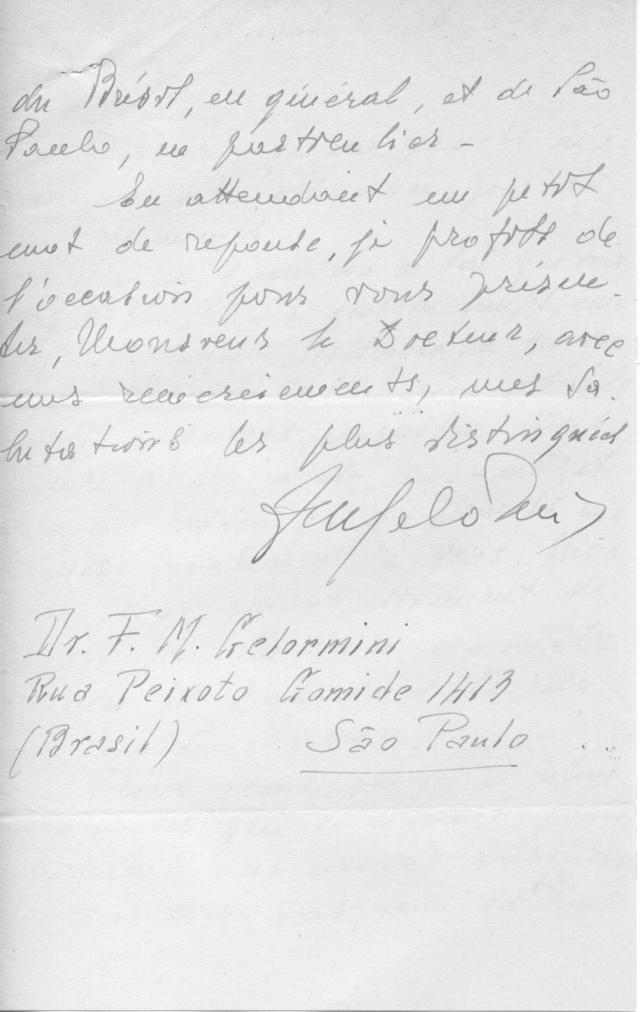 du Brésil, en général, et de São
Paulo, en particulier -
En attendant un petit
mot de reponse, je profite de
l'occation pour vous présen-
ter, Monsieur le Docteur, avec
mes remerciements, mes sa-
lutations les plus distingués
Dr. F. M. Gelormini
Rua Peixoto Gomide 1413
(Brasil) São Paulo